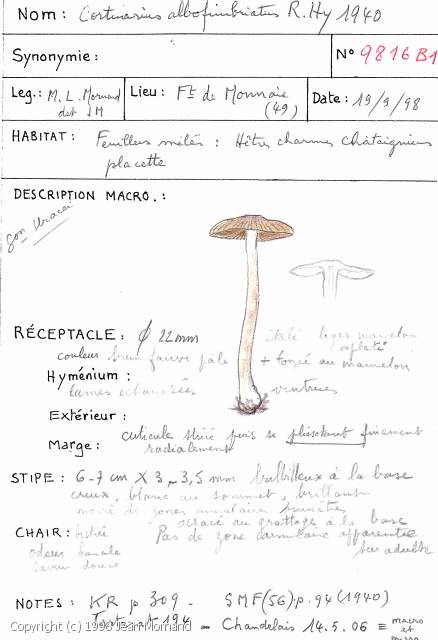 Nom : Cortinarius albofimbriatus R. Hy 1940
Synonymie :
N° 9816 B1
Leg.: M. L. Mornand
det JM
Lieu : Ft de Monnaie
(49)
Date : 19/9/98
HABITAT : Feuillus mêlés : Hêtres charmes châtaigniers
placette
DESCRIPTION MACRO. :
RÉCEPTACLE : ϕ 22mm étalé mamelon
aplati
couleur brun fauve pâle + foncé au mamelon
Hyménium :
lames échancrées ventrues
Extérieur :
cuticule striée puis se plissotant finement
Marge : radialement
STIPE : 6-7 cm X 3-3,5 mm bulbilleux à la base
creux, blanc au sommet, brillant
moiré de zones annulaires
ocracé au grattage à la base
CHAIR : bistré Pas de zone annulaire apparente
odeur banale sur adulte
saveur douce
NOTES : KR p 309 - SMF (56) p. 94 (1940)
194 - Chandelais 14.5.06 = macro
et
micro
Copyright (c) 1998 Jean Mornand